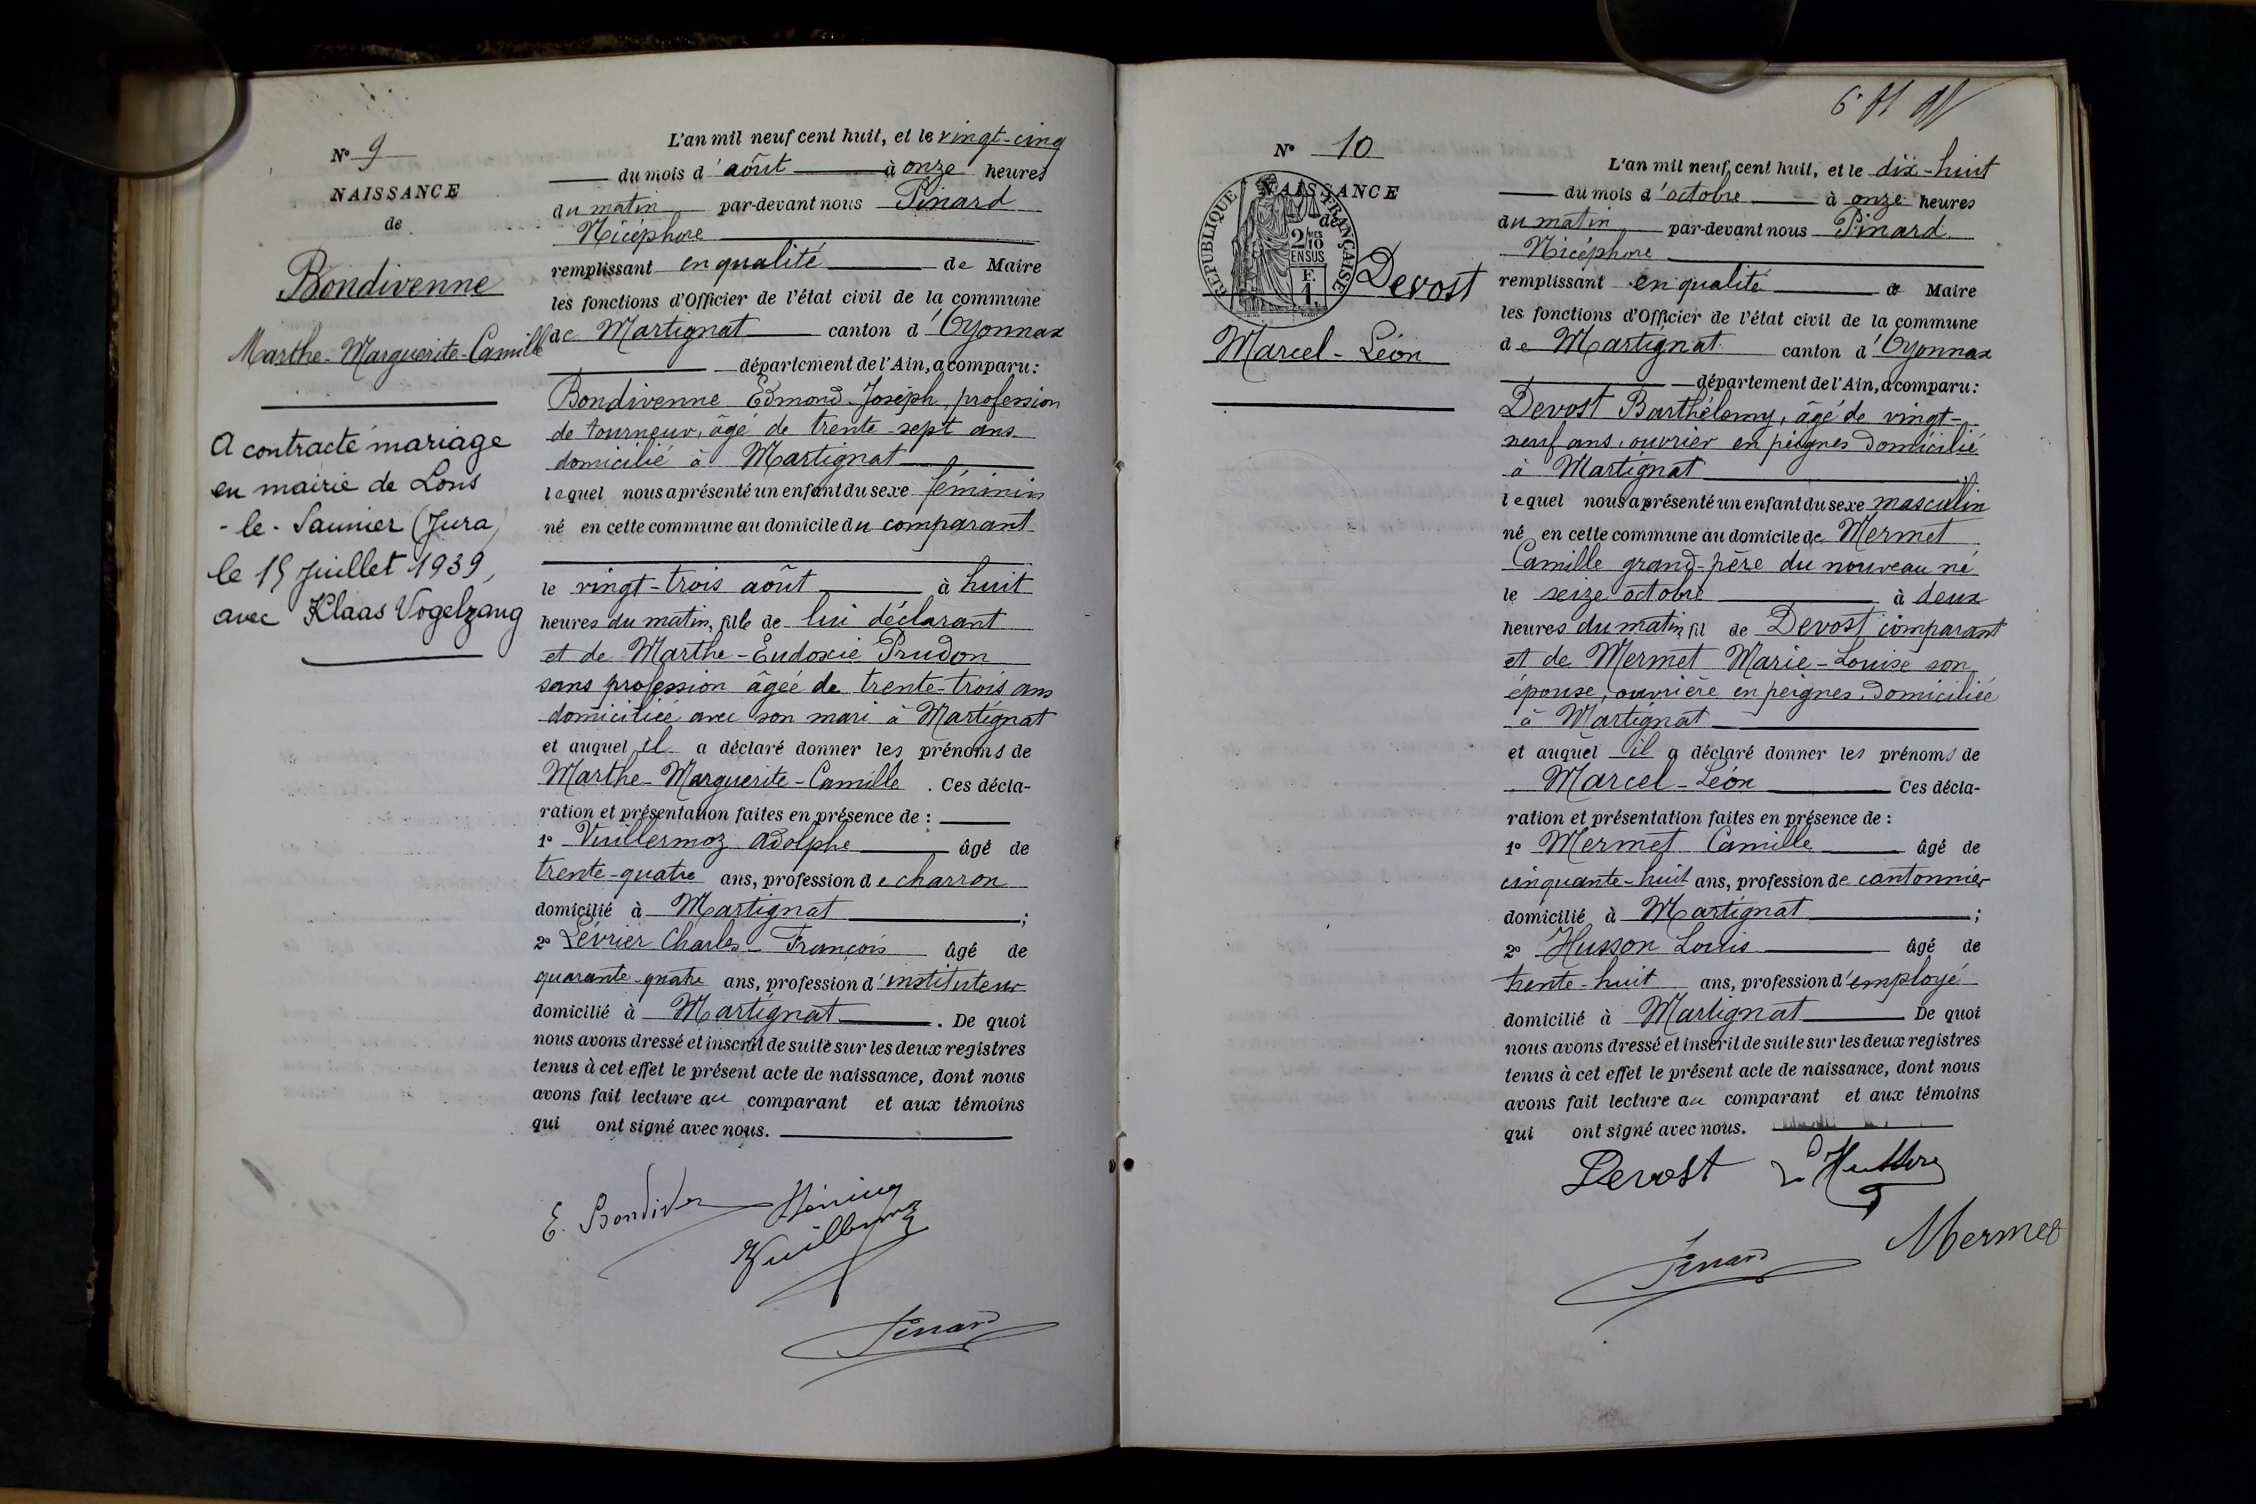 N° 9
NAISSANCE
de
Bondivenne
Marthe-Marguerite-Camille
A contracté mariage
en mairie de Lons
-le-Saunier (Jura)
le 15 Juillet 1939,
avec Klaas Vogelzang
L'an mil neuf cent huit, et le vingt-cinq
du mois d'août à onze heures
du matin par-devant nous Pinard
Nicéphore
remplissant en qualité de Maire
les fonctions d'Officier de l'état civil de la commune
de Martignat canton d'Oyonnax
département de l'Ain, a comparu:
Bondivenne Edmond-Joseph, profession
de tourneur, âgé de trente-sept ans
domicilié à Martignat
lequel nous a présenté un enfant du sexe féminin
né en cette commune au domicile du comparant
le vingt-trois août à huit
heures du matin, fille de lui déclarant
et de Marthe-Eudoxie Prudon
sans profession âgée de trente-trois ans
domiciliée avec son mari à Martignat
et auquel il a déclaré donner les prénoms de
Marthe-Marguerite-Camille. Ces décla-
ration et présentation faites en présence de :
1° Vuillermoz Adolphe âgé de
trente-quatre ans, profession de charron
domicilié à Martignat ;
2° Lévrier Charles-François âgé de
quarante-quatre ans, profession d'instituteur
domicilié à Martignat. De quoi
nous avons dressé et inscrit de suite sur les deux registres
tenus à cet effet le présent acte de naissance, dont nous
avons fait lecture au comparant et aux témoins
qui ont signé avec nous.
E. Bondiv
Vuillermoz
Pinard
N° 10
NAISSANCE
de
RÉPUBLIQUE FRANÇAISE
2/10
EN SUS
F.
1.
Devost
Marcel-Léon
L'an mil neuf cent huit, et le dix-huit
du mois d'octobre à onze heures
du matin par-devant nous Pinard
Nicéphore
remplissant en qualité de Maire
les fonctions d'Officier de l'état civil de la commune
de Martignat canton d'Oyonnax
département de l'Ain, a comparu:
Devost Barthélemy, âgé de vingt-
neuf ans, ouvrier en peignes domicilié
à Martignat
lequel nous a présenté un enfant du sexe masculin
né en cette commune au domicile de Mermet
Camille grand-père du nouveau né
le seize octobre à deux
heures du matin, fil de Devost comparant
et de Mermet Marie-Louise son
épouse, ouvrière en peignes, domiciliée
à Martignat
et auquel il a déclaré donner les prénoms de
Marcel-Léon Ces décla-
ration et présentation faites en présence de :
1° Mermet Camille âgé de
cinquante-huit ans, profession de cantonnier
domicilié à Martignat ;
2° Husson Louis âgé de
trente-huit ans, profession d'employé
domicilié à Martignat De quoi
nous avons dressé et inscrit de suite sur les deux registres
tenus à cet effet le présent acte de naissance, dont nous
avons fait lecture au comparant et aux témoins
qui ont signé avec nous.
Devost L Husson
Pinard Mermet